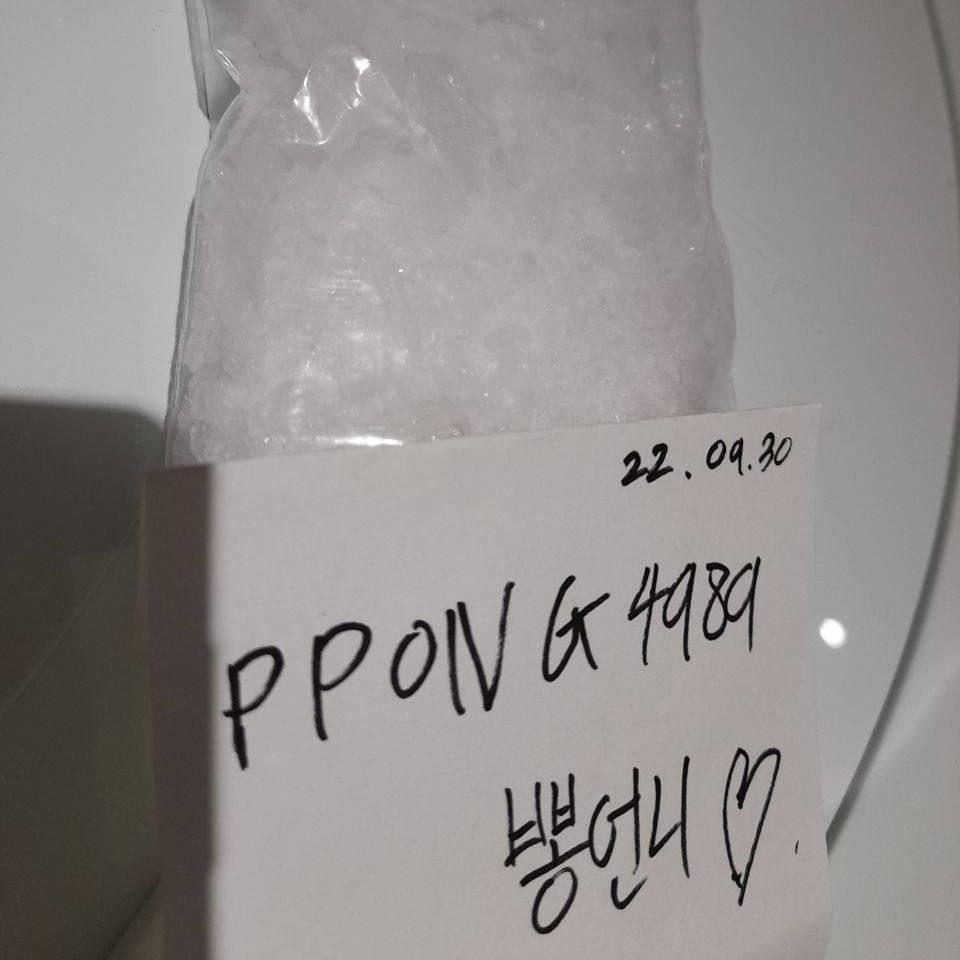 22.09.30
PPONG4989
뽕언니♡.